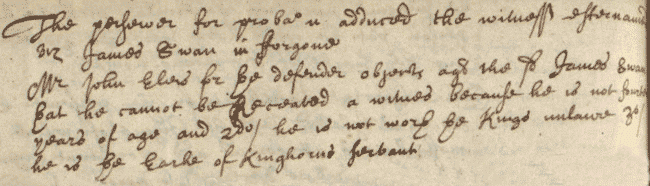 The persewer for probaˀn adduced the witness efternamd
viz James Swan in fforgone
Mr John Eleis for þe defender objects agt the sd James Swan
þat he cannot be Receaved a witnes because he is not fourtein
years of age and 2do/ he is not worþ þe Kings unlaw 3o/
he is þe Earle of Kinghorns servant